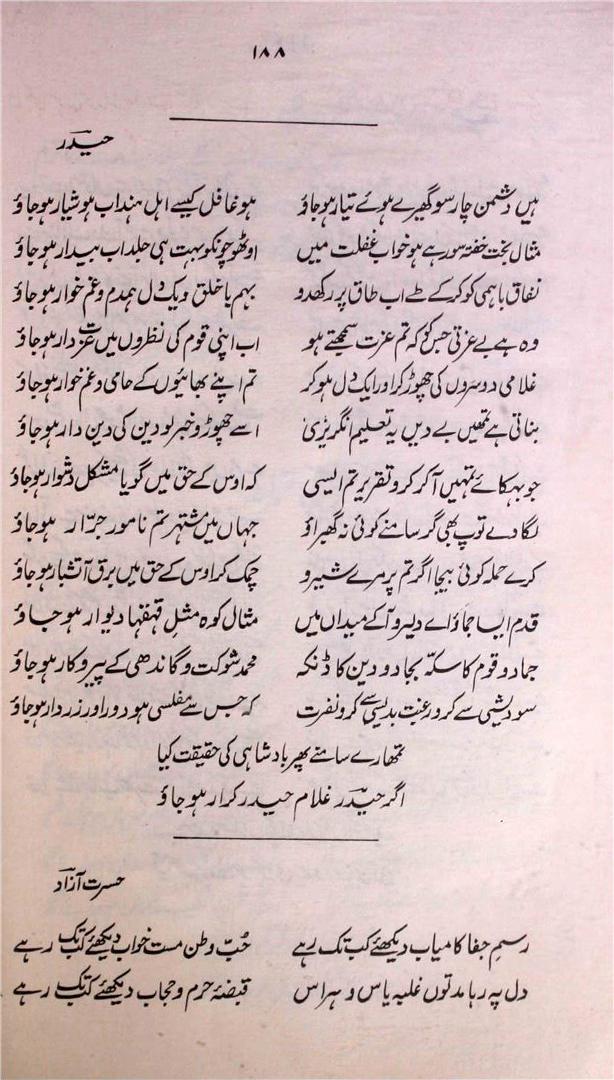 ۱۸۸
حیدر
ہیں دشمن چار سو گھیرے ہوئے تیار ہو جاؤ ہو غافل کیسے اہل ہند اب ہوشیار ہو جاؤ
مثال بخت خفتہ سو رہے ہو خواب غفلت میں اوٹھو چونکو بہت ہی جلد اب بیدار ہو جاؤ
نفاق باہمی کو کر کے طے اب طاق پر رکھدو بہم با خلق و یک دل ہمدم و غم خوار ہو جاؤ
وہ ہے بے عزتی جس کو کہ تم عزت سمجھتے ہو اب اپنی قوم کی نظروں میں عزت دار ہو جاؤ
غلامی دوسروں کی چھوڑ کر اور ایک دل ہو کر تم اپنے بھائیوں کے حامی و غم خوار ہو جاؤ
بناتی ہے تمھیں بے دیں یہ تعلیم انگریزی اسے چھوڑو خبر لو دین کی دین دار ہو جاؤ
جو بہکائے تمہیں آ کر کرو تقریر تم ایسی کہ اوس کے حق میں گویا مشکل دشوار ہو جاؤ
لگا دے توپ بھی گر سامنے کوئی نہ گھبراؤ جہاں میں مشتہر تم نامور جرّار ہو جاؤ
کرے حملہ کوئی بیجا اگر تم پر مرے شیرو چمک کر اوس کے حق میں برق آتشبار ہو جاؤ
قدم ایسا جماؤ اے دلیرو آ کے میداں میں مثال کوہ مثلِ قہقہا دیوار ہو جاؤ
جما دو قوم کا سکّہ بجا دو دین کا ڈنکہ محمد شوکت و گاندھی کے پیرو کار ہو جاؤ
سودیشی سے کرو رغبت بدیسی سے کرو نفرت کہ جس سے مفلسی ہو دور اور زردار ہو جاؤ
تمھارے سامنے پھر بادشاہی کی حقیقت کیا
اگر حیدر غلام حیدر کرار ہو جاؤ
حسرت آزاد
رسمِ جفا کامیاب دیکھئے کب تک رہے حُبِّ وطن مست خواب دیکھئے کب تک رہے
دل پہ رہا مدتوں غلبہ یاس و ہراس قبضۂ حرم و حجاب دیکھئے کب تک رہے